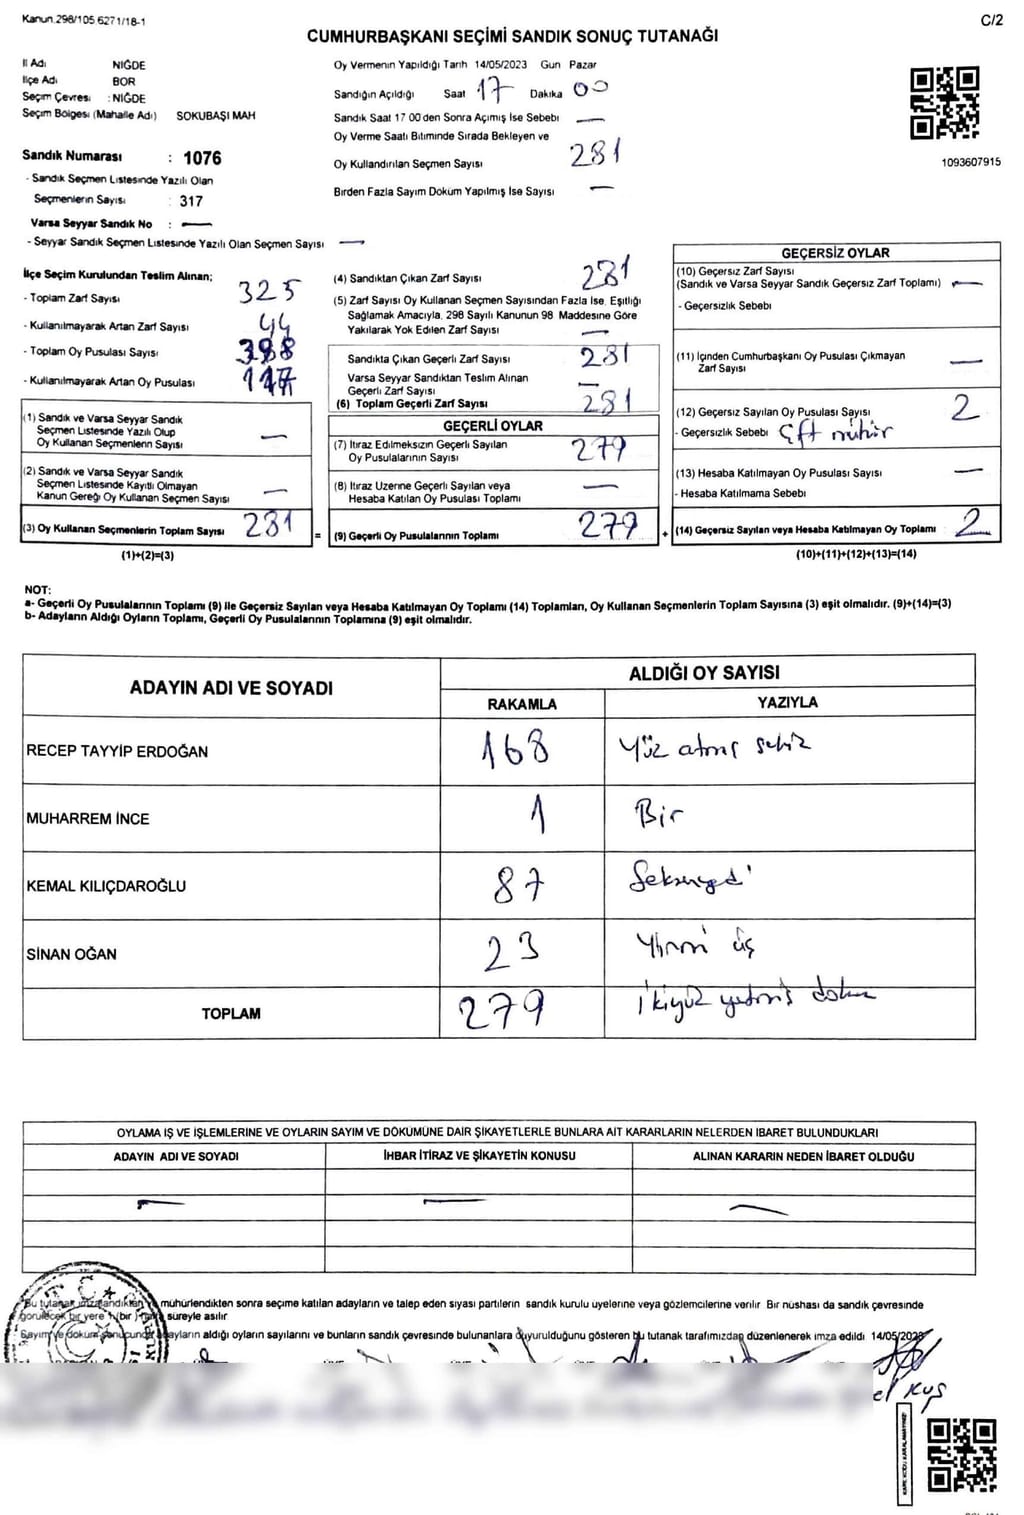 Kanun.298/105 6271/18-1
C/2
CUMHURBAŞKANI SEÇİMİ SANDIK SONUÇ TUTANAĞI
İl Adı NİĞDE
İlçe Adı BOR
Seçim Çevresi : NİĞDE
Seçim Bölgesi (Mahalle Adı) SOKUBAŞI MAH
Sandık Numarası : 1076
- Sandık Seçmen Listesinde Yazılı Olan
Seçmenlerin Sayısı : 317
Varsa Seyyar Sandık No : —
- Seyyar Sandık Seçmen Listesinde Yazılı Olan Seçmen Sayısı —
Oy Vermenin Yapıldığı Tarih 14/05/2023 Gün Pazar
Sandığın Açıldığı Saat 17 Dakika 00
Sandık Saat 17 00 den Sonra Açımış İse Sebebi —
Oy Verme Saati Bitiminde Sırada Bekleyen ve
Oy Kullandırılan Seçmen Sayısı 281
Birden Fazla Sayım Döküm Yapılmış İse Sayısı —
1093607915
İlçe Seçim Kurulundan Teslim Alınan;
- Toplam Zarf Sayısı 325
- Kullanılmayarak Artan Zarf Sayısı 44
- Toplam Oy Pusulası Sayısı
- Kullanılmayarak Artan Oy Pusulası
(1) Sandık ve Varsa Seyyar Sandık
Seçmen Listesinde Yazılı Olup
Oy Kullanan Seçmenlerin Sayısı —
(2) Sandık ve Varsa Seyyar Sandık
Seçmen Listesinde Kayıtlı Olmayan
Kanun Gereği Oy Kullanan Seçmen Sayısı —
(3) Oy Kullanan Seçmenlerin Toplam Sayısı 281
(1)+(2)=(3)
(4) Sandıktan Çıkan Zarf Sayısı 281
(5) Zarf Sayısı Oy Kullanan Seçmen Sayısından Fazla İse, Eşitliği
Sağlamak Amacıyla, 298 Sayılı Kanunun 98 Maddesine Göre
Yakılarak Yok Edilen Zarf Sayısı —
Sandıkta Çıkan Geçerli Zarf Sayısı 281
Varsa Seyyar Sandıktan Teslim Alınan
Geçerli Zarf Sayısı —
(6) Toplam Geçerli Zarf Sayısı 281
GEÇERLİ OYLAR
(7) İtiraz Edilmeksizin Geçerli Sayılan
Oy Pusulalarının Sayısı 279
(8) İtiraz Üzerine Geçerli Sayılan veya
Hesaba Katılan Oy Pusulası Toplamı —
= (9) Geçerli Oy Pusulalarının Toplamı 279 +
GEÇERSİZ OYLAR
(10) Geçersiz Zarf Sayısı
(Sandık ve Varsa Seyyar Sandık Geçersiz Zarf Toplamı) —
- Geçersizlik Sebebi
(11) İçinden Cumhurbaşkanı Oy Pusulası Çıkmayan
Zarf Sayısı —
(12) Geçersiz Sayılan Oy Pusulası Sayısı 2
- Geçersizlik Sebebi Çift mühür
(13) Hesaba Katılmayan Oy Pusulası Sayısı —
- Hesaba Katılmama Sebebi
(14) Geçersiz Sayılan veya Hesaba Katılmayan Oy Toplamı 2
(10)+(11)+(12)+(13)=(14)
NOT:
a- Geçerli Oy Pusulalarının Toplamı (9) ile Geçersiz Sayılan veya Hesaba Katılmayan Oy Toplamı (14) Toplamları, Oy Kullanan Seçmenlerin Toplam Sayısına (3) eşit olmalıdır. (9)+(14)=(3)
b- Adayların Aldığı Oyların Toplamı, Geçerli Oy Pusulalarının Toplamına (9) eşit olmalıdır.
ADAYIN ADI VE SOYADI ALDIĞI OY SAYISI
RAKAMLA YAZIYLA
RECEP TAYYİP ERDOĞAN 168 Yüz atmış sekiz
MUHARREM İNCE 1 Bir
KEMAL KILIÇDAROĞLU 87 Seksenyedi
SİNAN OĞAN 23 Yirmi üç
TOPLAM 279 İkiyüz yetmiş dokuz
OYLAMA İŞ VE İŞLEMLERİNE VE OYLARIN SAYIM VE DÖKÜMÜNE DAİR ŞİKAYETLERLE BUNLARA AİT KARARLARIN NELERDEN İBARET BULUNDUKLARI
ADAYIN ADI VE SOYADI İHBAR İTİRAZ VE ŞİKAYETİN KONUSU ALINAN KARARIN NEDEN İBARET OLDUĞU
— — —
Bu tutanak imzalandıktan ve mühürlendikten sonra seçime katılan adayların ve talep eden siyasi partilerin sandık kurulu üyelerine veya gözlemcilerine verilir Bir nüshası da sandık çevresinde
görülecek bir yere 1 (bir) hafta süreyle asılır
Sayım ve döküm sonucunda adayların aldığı oyların sayılarını ve bunların sandık çevresinde bulunanlara duyurulduğunu gösteren bu tutanak tarafımızdan düzenlenerek imza edildi 14/05/2023
el Kuş
KARE KODU KARALAMAYINIZ